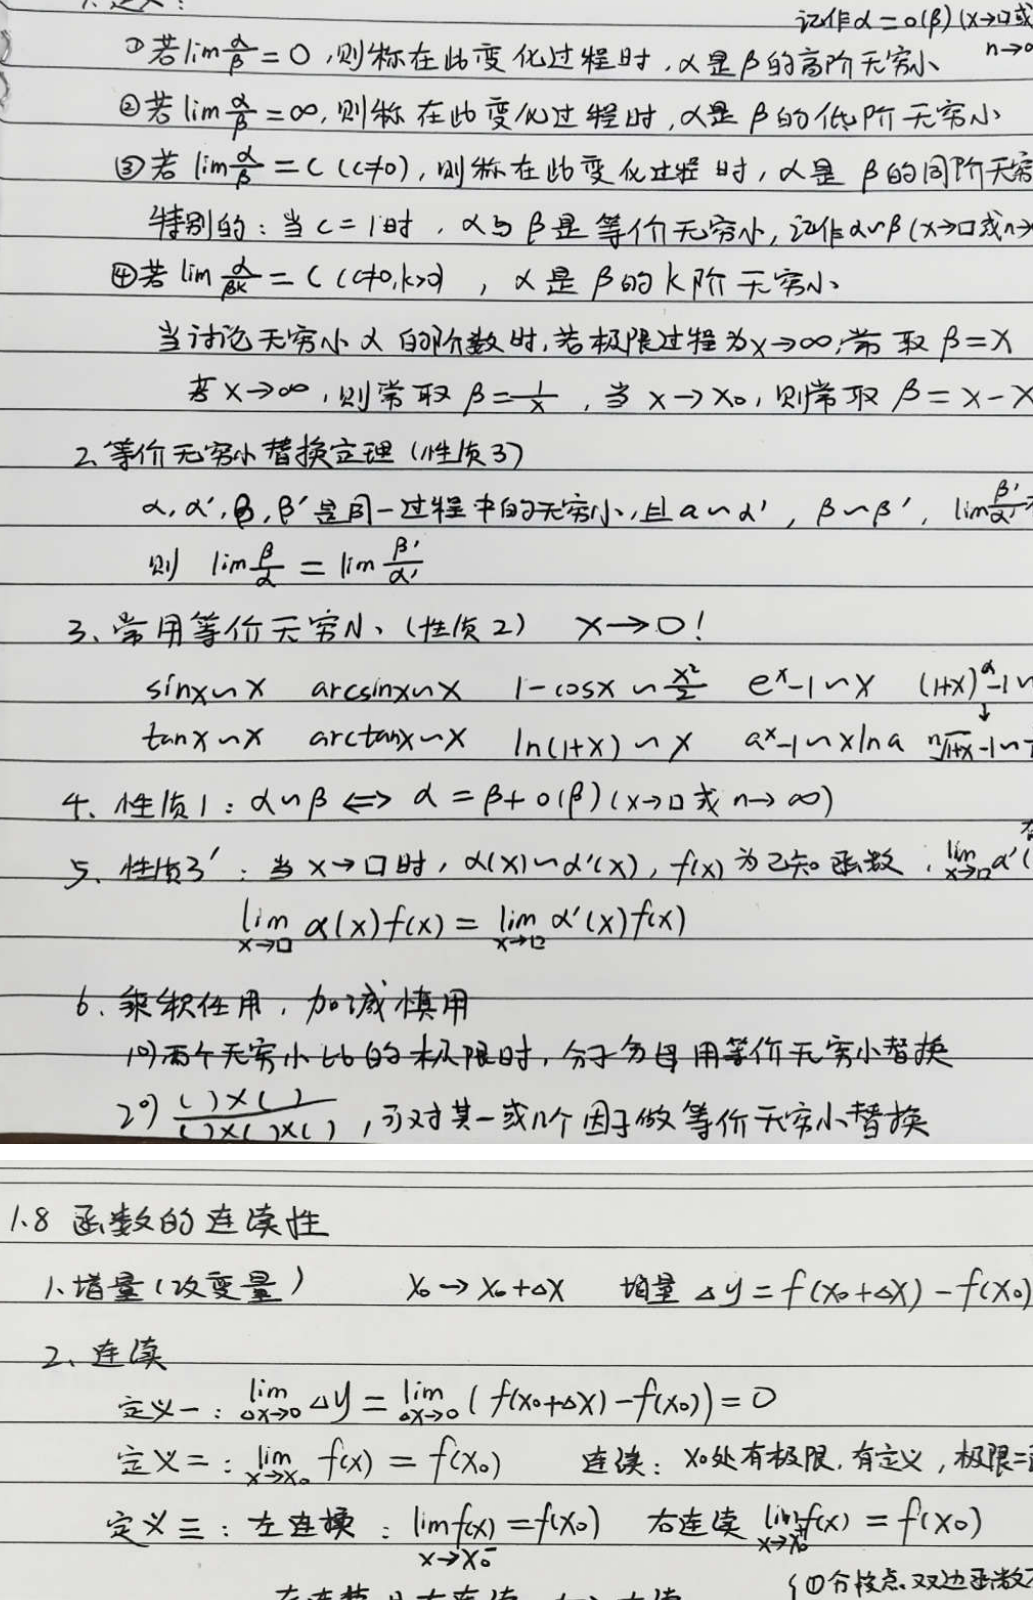 记作α=o(β)(x→□或
n→
①若lim α/β=0,则称在此变化过程时,α是β的高阶无穷小
②若lim α/β=∞,则称在此变化过程时,α是β的低阶无穷小
③若 lim α/β=C (C≠0),则称在此变化过程时,α是 β的同阶无穷
特别的:当C=1时,α与β是等价无穷小,记作α~β(x→□或n→
④若 lim α/βk = C (C≠0,k>0),α是β的k阶无穷小
当讨论无穷小α的阶数时,若极限过程为x→∞,常取β=x
若x→∞,则常取β=1/x,当x→x₀,则常取β=x-x
2、等价无穷小替换定理(性质3)
α,α′,β,β′是同一过程中的无穷小,且a~α′,β~β′,lim β′/α′
则 lim β/α = lim β′/α′
3、常用等价无穷小(性质2) x→0!
sinx~x arcsinx~x 1-cosx~x²/2 eˣ-1~x (1+x)^α-1~
↓
tanx~x arctanx~x ln(1+x)~x aˣ-1~xlna ⁿ√1+x-1~
4、性质1:α~β⟺α=β+o(β)(x→□或n→∞)
5、性质3′:当x→□时,α(x)~α′(x),f(x)为已知函数,lim x→□ α′(
lim x→□ α(x)f(x)=lim x→□ α′(x)f(x)
6、乘积任用,加减慎用
1°)两个无穷小比的极限时,分子分母用等价无穷小替换
2°) ( )×( )/( )×( )×( ),可对其一或几个因子做等价无穷小替换
1.8 函数的连续性
1、增量(改变量) x₀→x₀+Δx 增量 Δy=f(x₀+Δx)-f(x₀)
2、连续
定义一:lim Δx→0 Δy=lim Δx→0 (f(x₀+Δx)-f(x₀))=0
定义二:lim x→x₀ f(x)=f(x₀) 连续:x₀处有极限,有定义,极限=
定义三:左连续:lim x→x₀⁻ f(x)=f(x₀) 右连续 lim x→x₀⁺ f(x)=f(x₀)
{①分段点、双边函数